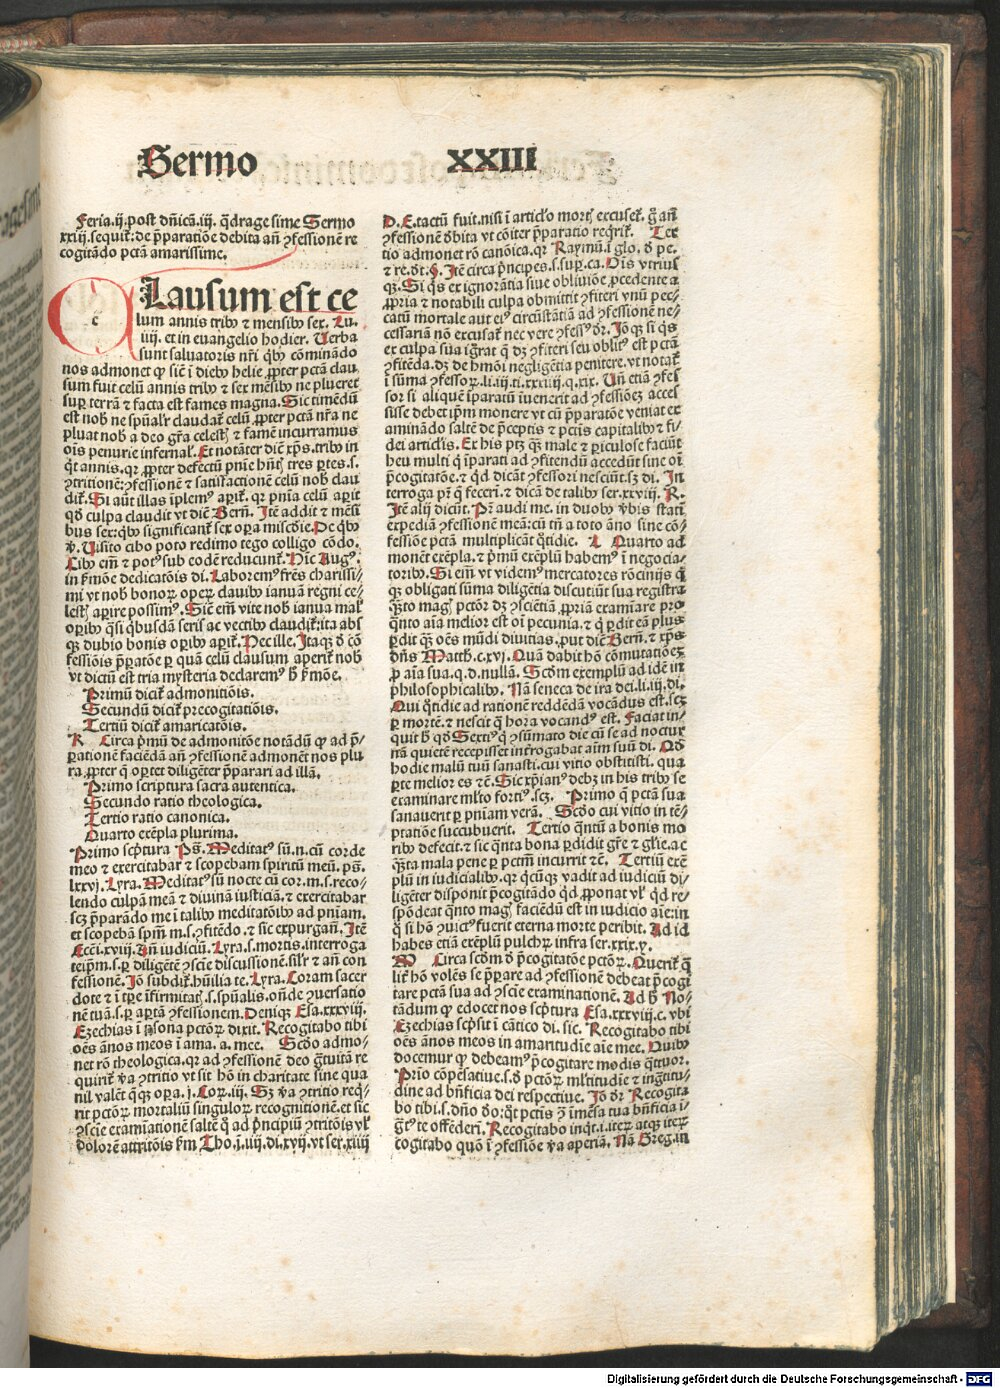 Sermo XXIII
Feria.ij.post dñica.iij. q̃dragesime Sermo
xxiij.sequit̃: de p̃paratiõe debita añ ꝯfessionẽ re
cogitãdo pctã amarissime.
Clausum est ce
lum annis tribꝰ ⁊ mensibꝰ sex. Lu.
iiij. et in euangelio hodier. Verba
sunt saluatoris nr̃i qͥbꝰ cõminãdo
nos admonet ꝙ siẽ i diebꝰ helie ꝓpter pctã clau
sum fuit celũ annis tribꝰ ⁊ sex mẽsibꝰ ne plueret
suꝑ terrã ⁊ facta est fames magna. Sic timẽdũ
est nob̃ ne sp̃ualr̃ claudat̃ celũ ꝓpter pctã nr̃a ne
pluat nob̃ a deo gr̃a celestꝭ ⁊ famẽ incurramus
oĩs penurie infernal̃. Et notãter diẽ xp̃s. tribꝰ in
qͥt annis. qꝛ ꝓpter defectũ pnĩe hñt tres ꝑtes.s.
ꝯtritionẽ: ꝯfessionẽ ⁊ satisfactionẽ celũ nob̃ clau
dit̃. Si aũt illas ĩplemꝰ aꝑit̃. qꝛ pnĩa celũ aꝑit
qd̃ culpa claudit vt diẽ Berñ. Itẽ addit ⁊ mẽsi
bus sex: qͥbꝰ significant̃ sex oꝑa miscðie. De qͥbꝰ
ꝟ. Visito cibo poto redimo tego colligo cõdo.
Cibꝰ em̃ ⁊ potꝰ sub eodẽ reducunt̃. Hic Augꝰ.
in ẽmõe dedicatõis di. Laboremꝰ frẽs charissi/
mi vt nob̃ bonoꝝ oꝑeꝝ clauibꝰ ianuã regni ce/
lestꝭ aꝑire possimꝰ. Siẽ em̃ vite nob̃ ianua malꝭ
oꝑibꝰ q̃si qͥbusdã seris ac vectibꝰ claudit̃: ita abs
qꝫ dubio bonis oꝑibꝰ aꝑit̃. Hec ille. Itaqꝫ ð cõ
fessiõis p̃ꝑatõe ꝑ quã celũ clausum aꝑerit̃ nob̃
vt dictũ est tria mysteria declaremꝰ h̃ ẽmõe.
Primũ dicit̃ admonitiõis.
Secundũ dicit̃ precogitatiõis.
Tertiũ dicit̃ amaricatõis.
K Circa p̃mũ de admonitõe notãdũ ꝙ ad p̃/
ꝑationẽ faciẽdã añ ꝯfessionẽ admonẽt nos plu
ra ꝓpter q̃ oꝑtet diligẽter p̃parari ad illã.
Primo scriptura sacra autentica.
Secundo ratio theologica.
Tertio ratio canonica.
Quarto exẽpla plurima.
Primo sc̃ptura Pš. Meditatꝰ sũ.n.cũ corde
meo ⁊ exercitabar ⁊ scopebam spiritũ meũ. pš.
lxxvj. Lyra. Meditatꝰ sũ nocte cũ cor.m.s.reco/
lendo culpã meã ⁊ diuinã iusticiã. ⁊ exercitabar
scꝫ p̃parãdo me i talibꝰ meditatõibꝰ ad pniam.
et scopebã spm̃ m.s.ꝯfitẽdo. ⁊ sic expurgañ. Itẽ
Ecci.xviij. Añ iudiciũ. Lyra.s.mortis.interroga
teip̃m.s.ꝑ diligẽtẽ ꝯscie discussionẽ. sil̃r ⁊ añ con
fessionẽ. Iõ subdit̃. hũilia te. Lyra. Coram sacer
dote ⁊ i tp̃e ĩfirmitatꝭ.s.sp̃ualis. oñde ꝯuersatio
nẽ tuã.s.ꝑ aꝑtã ꝯfessionem. Deniqꝫ Esa.xxxviij.
Ezechias i ꝑsona pctõꝝ dixit. Recogitabo tibi
oẽs ãnos meos i ama. a. mee. Scðo admo/
net rõ theologica. qꝛ ad ꝯfessionẽ deo gͣtuitã re
quirit̃ ꝟa ꝯtritio vt sit hõ in charitate sine qua
nil valet qͥcqꝫ oꝑa. j. Coꝝ. iij. Sꝫ ꝟa ꝯtritio reqͥ
rit pctõꝝ mortaliũ singuloꝝ recognitionẽ. et sic
ꝯscie examĩationẽ saltẽ q̃ ad p̃ncipiũ ꝯtritõis vl̃
dolorẽ attritõis ẽm Tho.j.iiij.di.xvij. vt ser.xiiij
D. E. tactũ fuit. nisi i articl̃o mortꝭ excuset̃. g̃ añ
ꝯfessionẽ ðbita vt cõiter p̃paratio reqͥrit̃. Ter
tio admonet rõ canõica. qꝛ Raymũ. i glo. ð pe.
⁊ re.ðt.ꝗ. Itẽ circa p̃ncipes.s.suꝑ.ca. Oĩs vtrius
qꝫ. Si qͥs ex ignorãtia siue obliuiõe ꝓcedente a
ꝓpria ⁊ notabili culpa obmittit ꝯfiteri vnũ pec/
catũ mortale aut eiꝰ circũstãtiã ad ꝯfessionẽ ne/
cessariã nõ excusat̃ nec vere ꝯfessꝰ ðr. Iõqꝫ si qͥs
ex culpa sua igr̃at q̃ dꝫ ꝯfiteri seu oblitꝰ est pctã
ꝯfitẽda. dꝫ de hmõi negligẽtia penitere. vt notat̃
i sũma ꝯfessoꝝ.li.iij.ti.xxxiiij.q.xix. Uñ etiã ꝯfes
sor si aliquẽ ĩparatũ inuenerit ad ꝯfessiõeꝫ acces
sisse debet ip̃m monere vt cũ p̃paratõe veniat ex
aminãdo saltẽ de p̃ceptis ⁊ pctis capitalibꝰ ⁊ fi/
dei articl̃is. Ex his ptꝫ qͫ male ⁊ ꝑiculose faciũt
heu multi q̃ ĩparati ad ꝯfitendũ accedũt sine oĩ
p̃cogitatõe. ⁊ qd̃ dicãt ꝯfessori nesciũt. sꝫ di. In
terroga pr̃ q̃ feceri. ⁊ dicã de talibꝰ ser.xxviij. R.
Itẽ alij dicũt. Pr̃ audi me. in duobꝰ ꝟbis statĩ
expediã ꝯfessionẽ meã: cũ tñ a toto ãno sine cõ/
fessiõe pctã multiplicãt qͦtidie. L Quarto ad
monẽt exẽpla. ⁊ p̃mũ exẽplũ habemꝰ i negocia/
toribꝰ. Si em̃ vt videmꝰ mercatores rõcinijs q̃
qꝫ obligati sũma diligẽtia discutiũt sua registra
qͣ̃to magꝭ pctõꝝ dꝫ ꝯsciẽtiã ꝓpriã examĩare pro
qͣ̃to aĩa melior est oĩ pecunia. ⁊ q̃ ꝑdit eã plus
ꝑdit qͫ oẽs mũdi diuitias. put diẽ Berñ. ⁊ xp̃s
dñs Matth̃.c.xvj. Quã dabit hõ cõmutatioẽꝫ
ꝓ aĩa sua.q.d.nullã. Scðm exemplũ ad idẽ in
philosophicalibꝰ. Nã seneca de ira dei.li.iij.di.
Qui qͦtidie ad rationẽ reddẽdã vocãdus est. scꝫ
ꝑ mortẽ. ⁊ nescit q̃ hora vocandꝰ est. Faciat in/
quit h̃ qd̃ Sextiꝰ q̃ ꝯsũmato die cũ se ad noctur
nã quietẽ recepisset int̃rogabat aĩm suũ di. Qd̃
hodie malũ tuũ sanasti. cui vitio obstitisti. qua
ꝑte melior es ⁊c̃. Sic xp̃ianꝰ debꝫ in his tribꝰ se
examinare ml̃to fortiꝰ. scꝫ. Primo q̃ pctã sua
sanauerit ꝑ pniam verã. Scðo cui vitio in tẽ/
ptatiõe succubuerit. Tertio qͣ̃tũ a bonis mo
ribꝰ defecit. ⁊ sic qͣ̃ta bona ꝑdidit gr̃e ⁊ gl̃ie. a c
qͣ̃ta mala pene ꝑ pctm̃ incurrit ⁊c̃. Tertiũ exẽ
plũ in iudicialibꝰ. qꝛ qͥcũqꝫ vadit ad iudiciũ di/
ligẽter disponit p̃cogitãdo qd̃ ꝓponat vl̃ qd̃ re/
spõdeat qͣ̃to magꝭ faciẽdũ est in iudicio aĩe: in
q̃ si hõ ꝯuictꝰ fuerit eterna morte peribit. Ad id
habes etiã exẽplũ pulchꝝ infra ser.xxix.y.
M Circa scðm ð p̃cogitatõe pctõꝝ. Querit̃ q̃
lit̃ hõ volẽs se p̃parare ad ꝯfessionẽ debeat p̃cogi
tare pctã sua ad ꝯscie examinationẽ. Ad h̃ No/
tãdum ꝙ edocet nos sc̃ptura Esa.xxxviij.c. vbi
Ezechias sc̃psit i cãtico di. sic. Recogitabo tibi
oẽs ãnos meos in amaritudĩe aĩe mee. Quibꝰ
docemur ꝙ debeamꝰ p̃cogitare modis qͣttuor.
Prio cõpẽsatiue.s.ð pctõꝝ ml̃titudĩe ⁊ ingͣtitu/
dine ad bñficia dei respectiue. Iõ ðr Recogita
bo tibi.s.dño ðo: qͣt pctis ꝫ ĩmẽsa tua bñficia i
gͣtꝰ te offẽderi. Recogitabo inqͥt. i. iteꝝ atqꝫ iteꝝ
cogitabo quõ i ꝯfessiõe ꝟa aperiã. Nã Greg. in
Digitalisierung gefördert durch die Deutsche Forschungsgemeinschaft - DFG